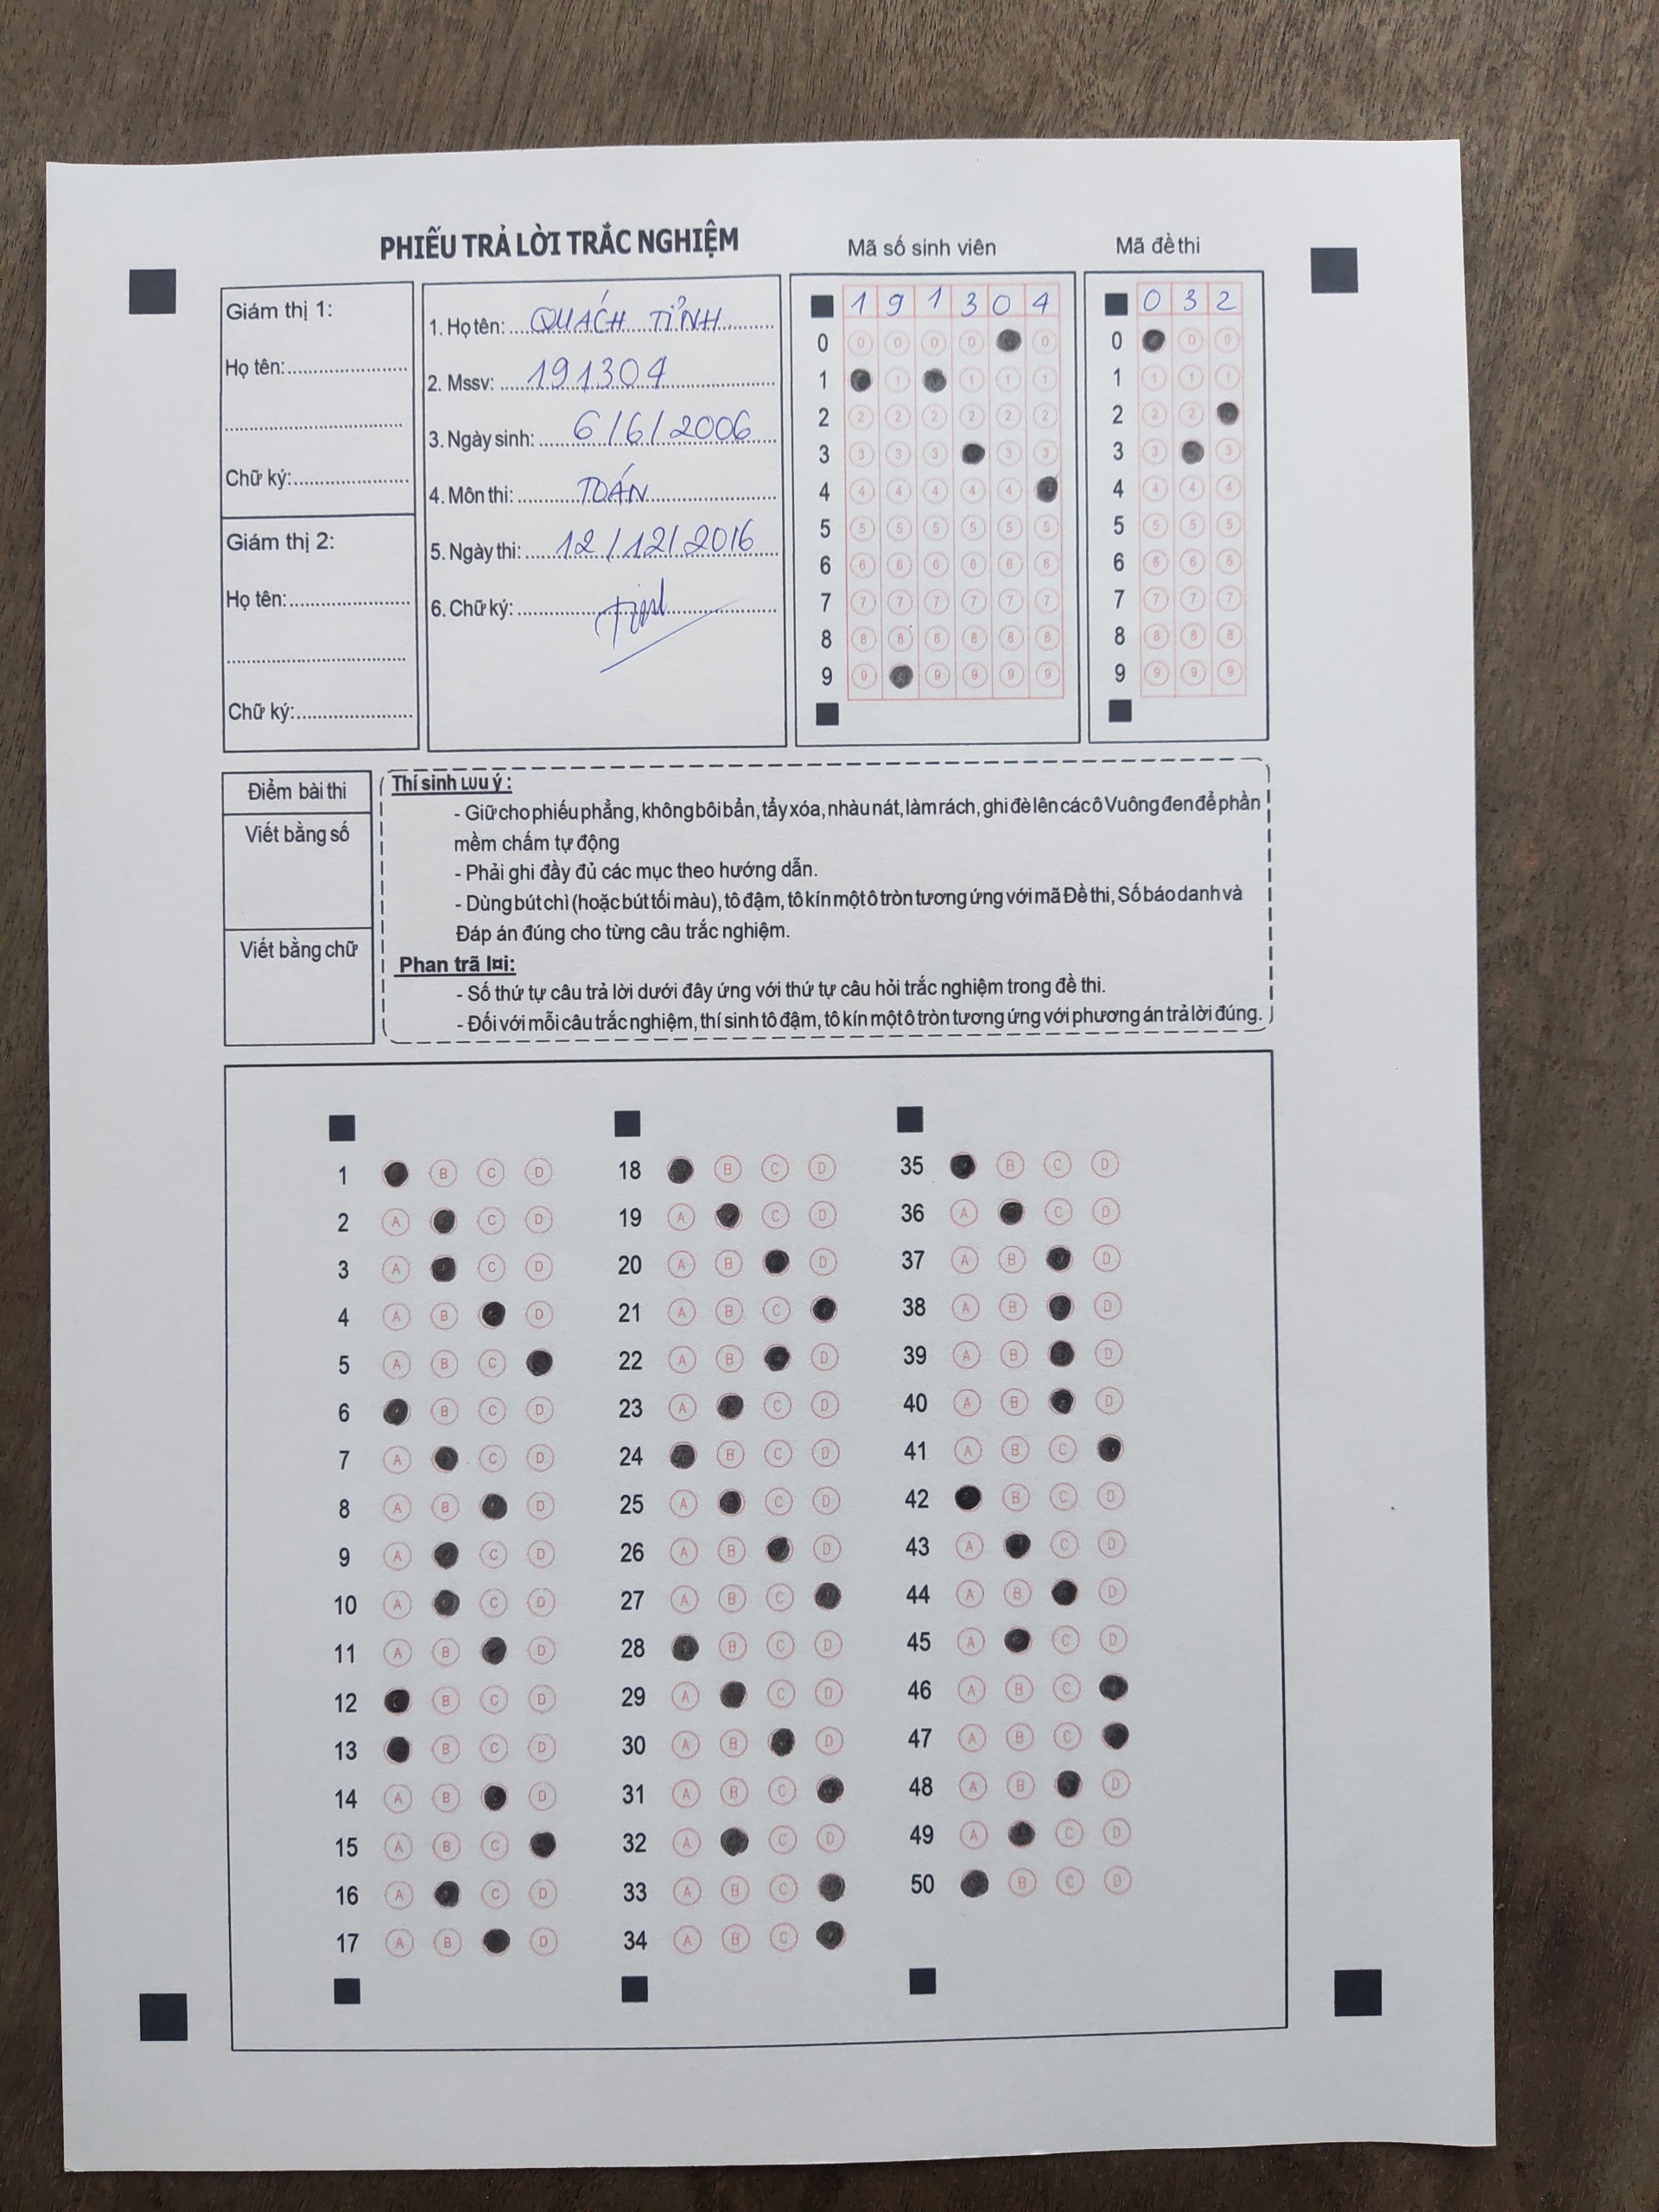 PHIẾU TRẢ LỜI TRẮC NGHIỆM
Mã số sinh viên
Mã đề thi
Giám thị 1:
Họ tên:
Chữ ký:
Giám thị 2:
Họ tên:
Chữ ký:
1. Họ tên: QUÁCH TỈNH
2. Mssv: 191304
3. Ngày sinh: 6/6/2006
4. Môn thi: TOÁN
5. Ngày thi: 12/12/2016
6. Chữ ký:
1 9 1 3 0 4
0 0 0 0 0 0
1 1 1 1 1
2 2 2 2 2 2 2
3 3 3 3 3 3
4 4 4 4 4 4
5 5 5 5 5 5 5
6 6 6 6 6 6 6
7 7 7 7 7 7 7
8 8 8 8 8 8 8
9 9 9 9 9 9
0 3 2
0 0 0
1 1 1 1
2 2 2
3 3 3
4 4 4 4
5 5 5 5
6 6 6 6
7 7 7 7
8 8 8 8
9 9 9 9
Điểm bài thi
Viết bằng số
Viết bằng chữ
Thí sinh Lưu ý :
- Giữ cho phiếu phẳng, không bôi bẩn, tẩy xóa, nhàu nát, làm rách, ghi đè lên các ô Vuông đen để phần
mềm chấm tự động
- Phải ghi đầy đủ các mục theo hướng dẫn.
- Dùng bút chì (hoặc bút tối màu), tô đậm, tô kín một ô tròn tương ứng với mã Đề thi, Số báo danh và
Đáp án đúng cho từng câu trắc nghiệm.
Phan trã l¤i:
- Số thứ tự câu trả lời dưới đây ứng với thứ tự câu hỏi trắc nghiệm trong đề thi.
- Đối với mỗi câu trắc nghiệm, thí sinh tô đậm, tô kín một ô tròn tương ứng với phương án trả lời đúng.
1 B C D
2 A C D
3 A C D
4 A B D
5 A B C
6 B C D
7 A C D
8 A B D
9 A C D
10 A C D
11 A B D
12 B C D
13 B C D
14 A B D
15 A B C
16 A C D
17 A B D
18 B C D
19 A C D
20 A B D
21 A B C
22 A B D
23 A C D
24 B C D
25 A C D
26 A B D
27 A B C
28 B C D
29 A C D
30 A B D
31 A B C
32 A C D
33 A B C
34 A B C
35 B C D
36 A C D
37 A B D
38 A B D
39 A B D
40 A B D
41 A B C
42 B C D
43 A C D
44 A B D
45 A C D
46 A B C
47 A B C
48 A B D
49 A C D
50 B C D